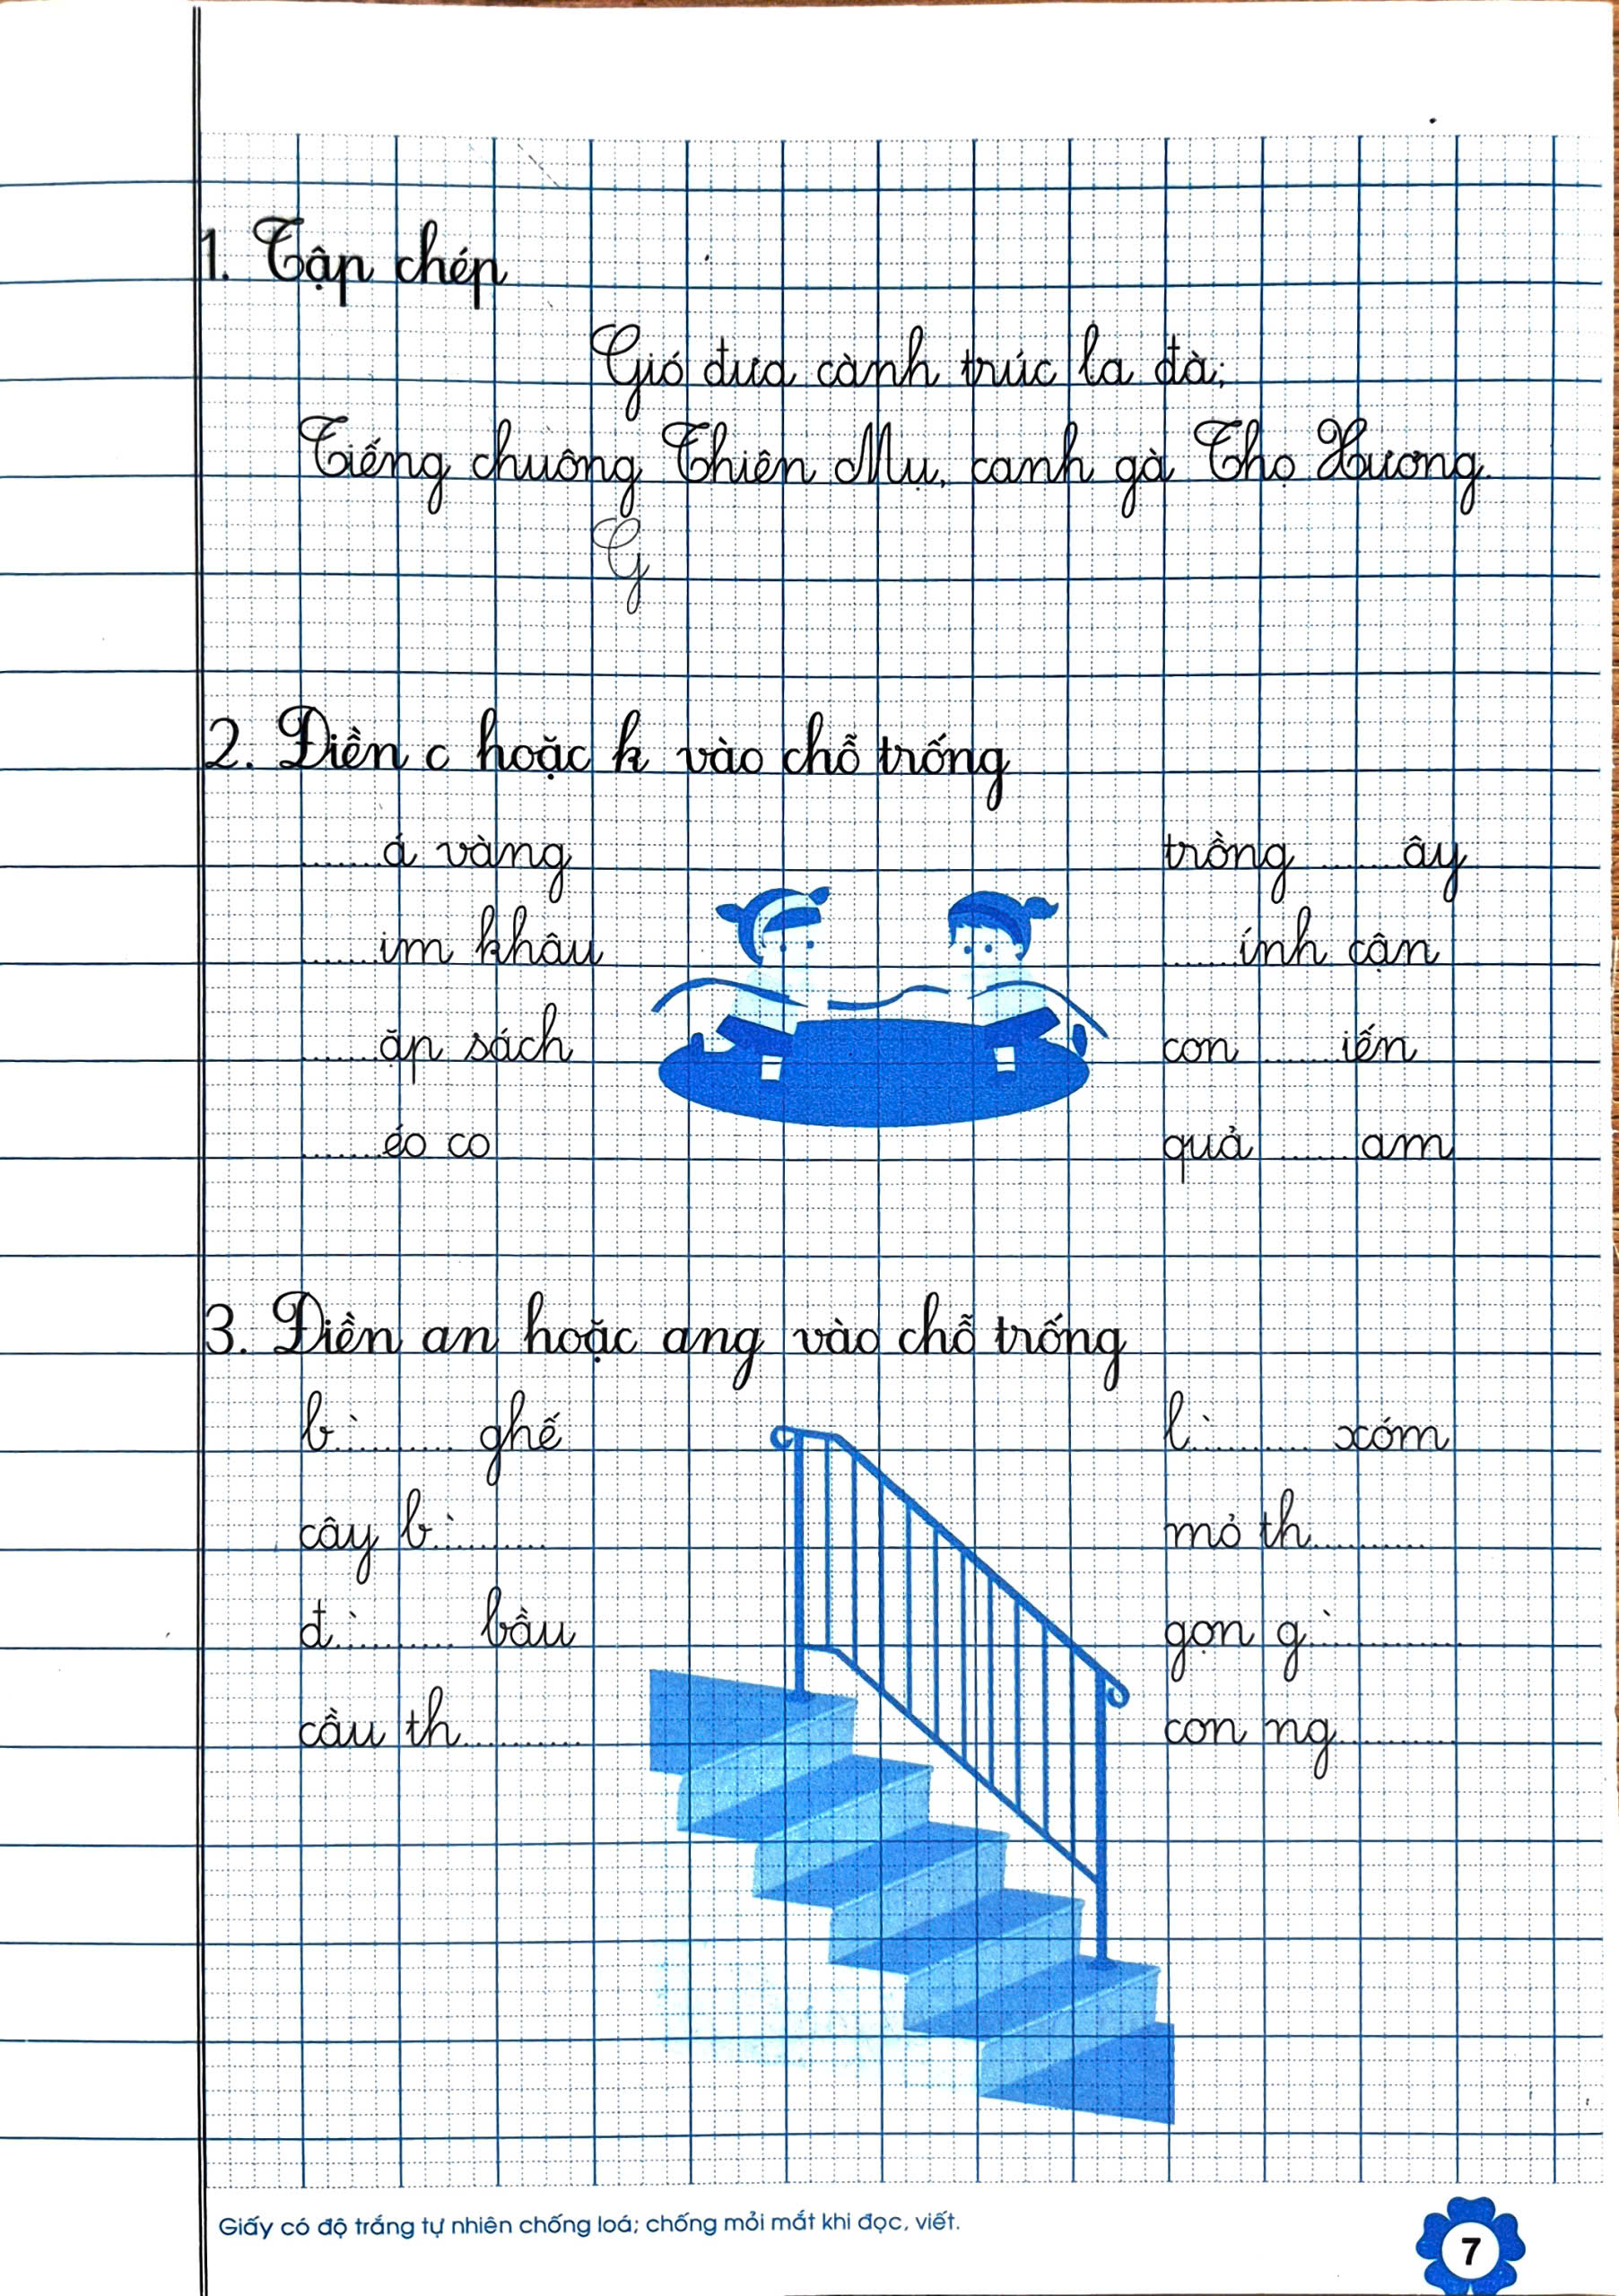 1. Tập chép
Gió đưa cành trúc la đà;
Tiếng chuông Thiên Mụ, canh gà Thọ Xương.
G
2. Điền c hoặc k vào chỗ trống
.......á vàng trồng .......ây
.......im khâu .......ính cận
.......ặp sách con .......iến
.......éo co quả .......am
3. Điền an hoặc ang vào chỗ trống
b..̀......... ghế l..̀......... xóm
cây b..̀......... mỏ th...........
đ..̀......... bầu gọn g..̀.........
cầu th........... con ng...........
Giấy có độ trắng tự nhiên chống loá; chống mỏi mắt khi đọc, viết.
7